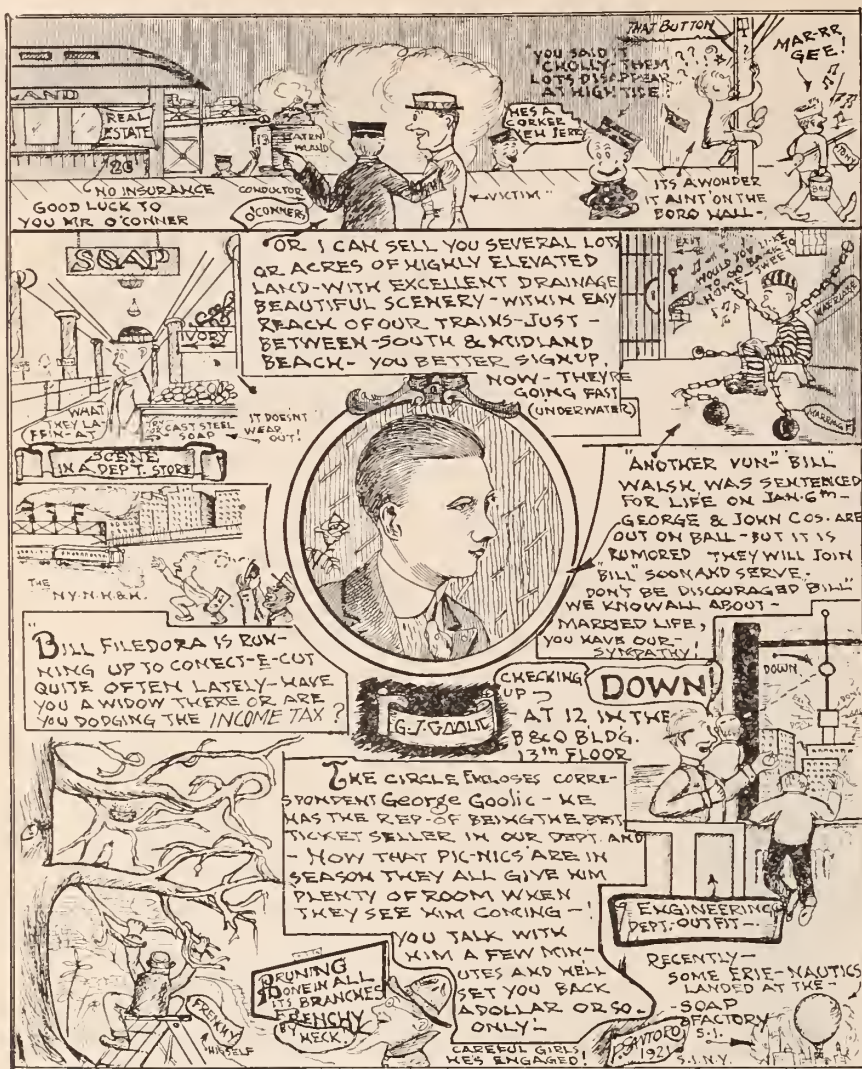 LAND
REAL
ESTATE
20
13
STATEN
ISLAND
NO INSURANCE
GOOD LUCK TO
YOU MR O'CONNER
CONDUCTOR
O'CONNERS
"VICTIM"
HES A
CORKER
YEH JERE
"YOU SAID IT
CHOLLY-THEM
LOTS DISAPPEAR
AT HIGH TIDE!
THAT BUTTON
???!
MAR-RR
GEE!
TONY
ITS A WONDER
IT AINT' ON THE
BORO HALL-
SOAP
IVORY
WHAT
THEY LA-
FFIN-AT
TRY
OUR
CAST STEEL
SOAP
IT DOESN'T
WEAR
OUT!
SCENE
IN A DEPT. STORE
"OR I CAN SELL YOU SEVERAL LOTS
OR ACRES OF HIGHLY ELEVATED
LAND-WITH EXCELLENT DRAINAGE
BEAUTIFUL SCENERY-WITHIN EASY
REACH OF OUR TRAINS-JUST-
BETWEEN-SOUTH & MIDLAND
BEACH-YOU BETTER SIGN UP,
NOW-THEY'RE
GOING FAST
(UNDERWATER)
EXIT
WOULD YOU LIKE
TO GO BACK TO
HOME-SWEET
MARRIAGE
"ANOTHER VUN" BILL
WALSH WAS SENTENCED
FOR LIFE ON JAN. 6TH-
GEORGE & JOHN COS. ARE
OUT ON BAIL-BUT IT IS
RUMORED THEY WILL JOIN
"BILL" SOON AND SERVE.
DON'T BE DISCOURAGED BILL"
WE KNOW ALL ABOUT-
MARRIED LIFE,
YOU HAVE OUR-
SYMPATHY!
THE
N.Y.N.H.&H.
"BILL FILEDORA IS RUN-
NING UP TO CONECT-E-CUT
QUITE OFTEN LATELY-HAVE
YOU A WIDOW THERE OR ARE
YOU DODGING THE INCOME TAX?
G.J. GOOLIC
CHECKING
UP-
AT 12 IN THE
B&O BLDG.
13th FLOOR
DOWN!
DOWN
THE CIRCLE ENCLOSES CORRE-
SPONDENT George Goolic-HE
HAS THE REP-OF BEING THE BEST
TICKET SELLER IN OUR DEPT. AND
-NOW THAT PIC-NICS ARE IN
SEASON THEY ALL GIVE HIM
PLENTY OF ROOM WHEN
THEY SEE HIM COMING-!
YOU TALK WITH
HIM A FEW MIN-
UTES AND HE'LL
SET YOU BACK
A DOLLAR OR SO-
ONLY!-
CAREFUL GIRLS
HE'S ENGAGED!
ENGINEERING
DEPT. OUTFIT-
FRENCHY
HIMSELF
PRUNING
DONE IN ALL
ITS BRANCHES
FRENCHY
BY HECK.
RECENTLY-
SOME ERIE-NAUTICS
LANDED AT THE-
-SOAP
FACTORY
S.I.
P. SANTORO
1921
S.I.N.Y.